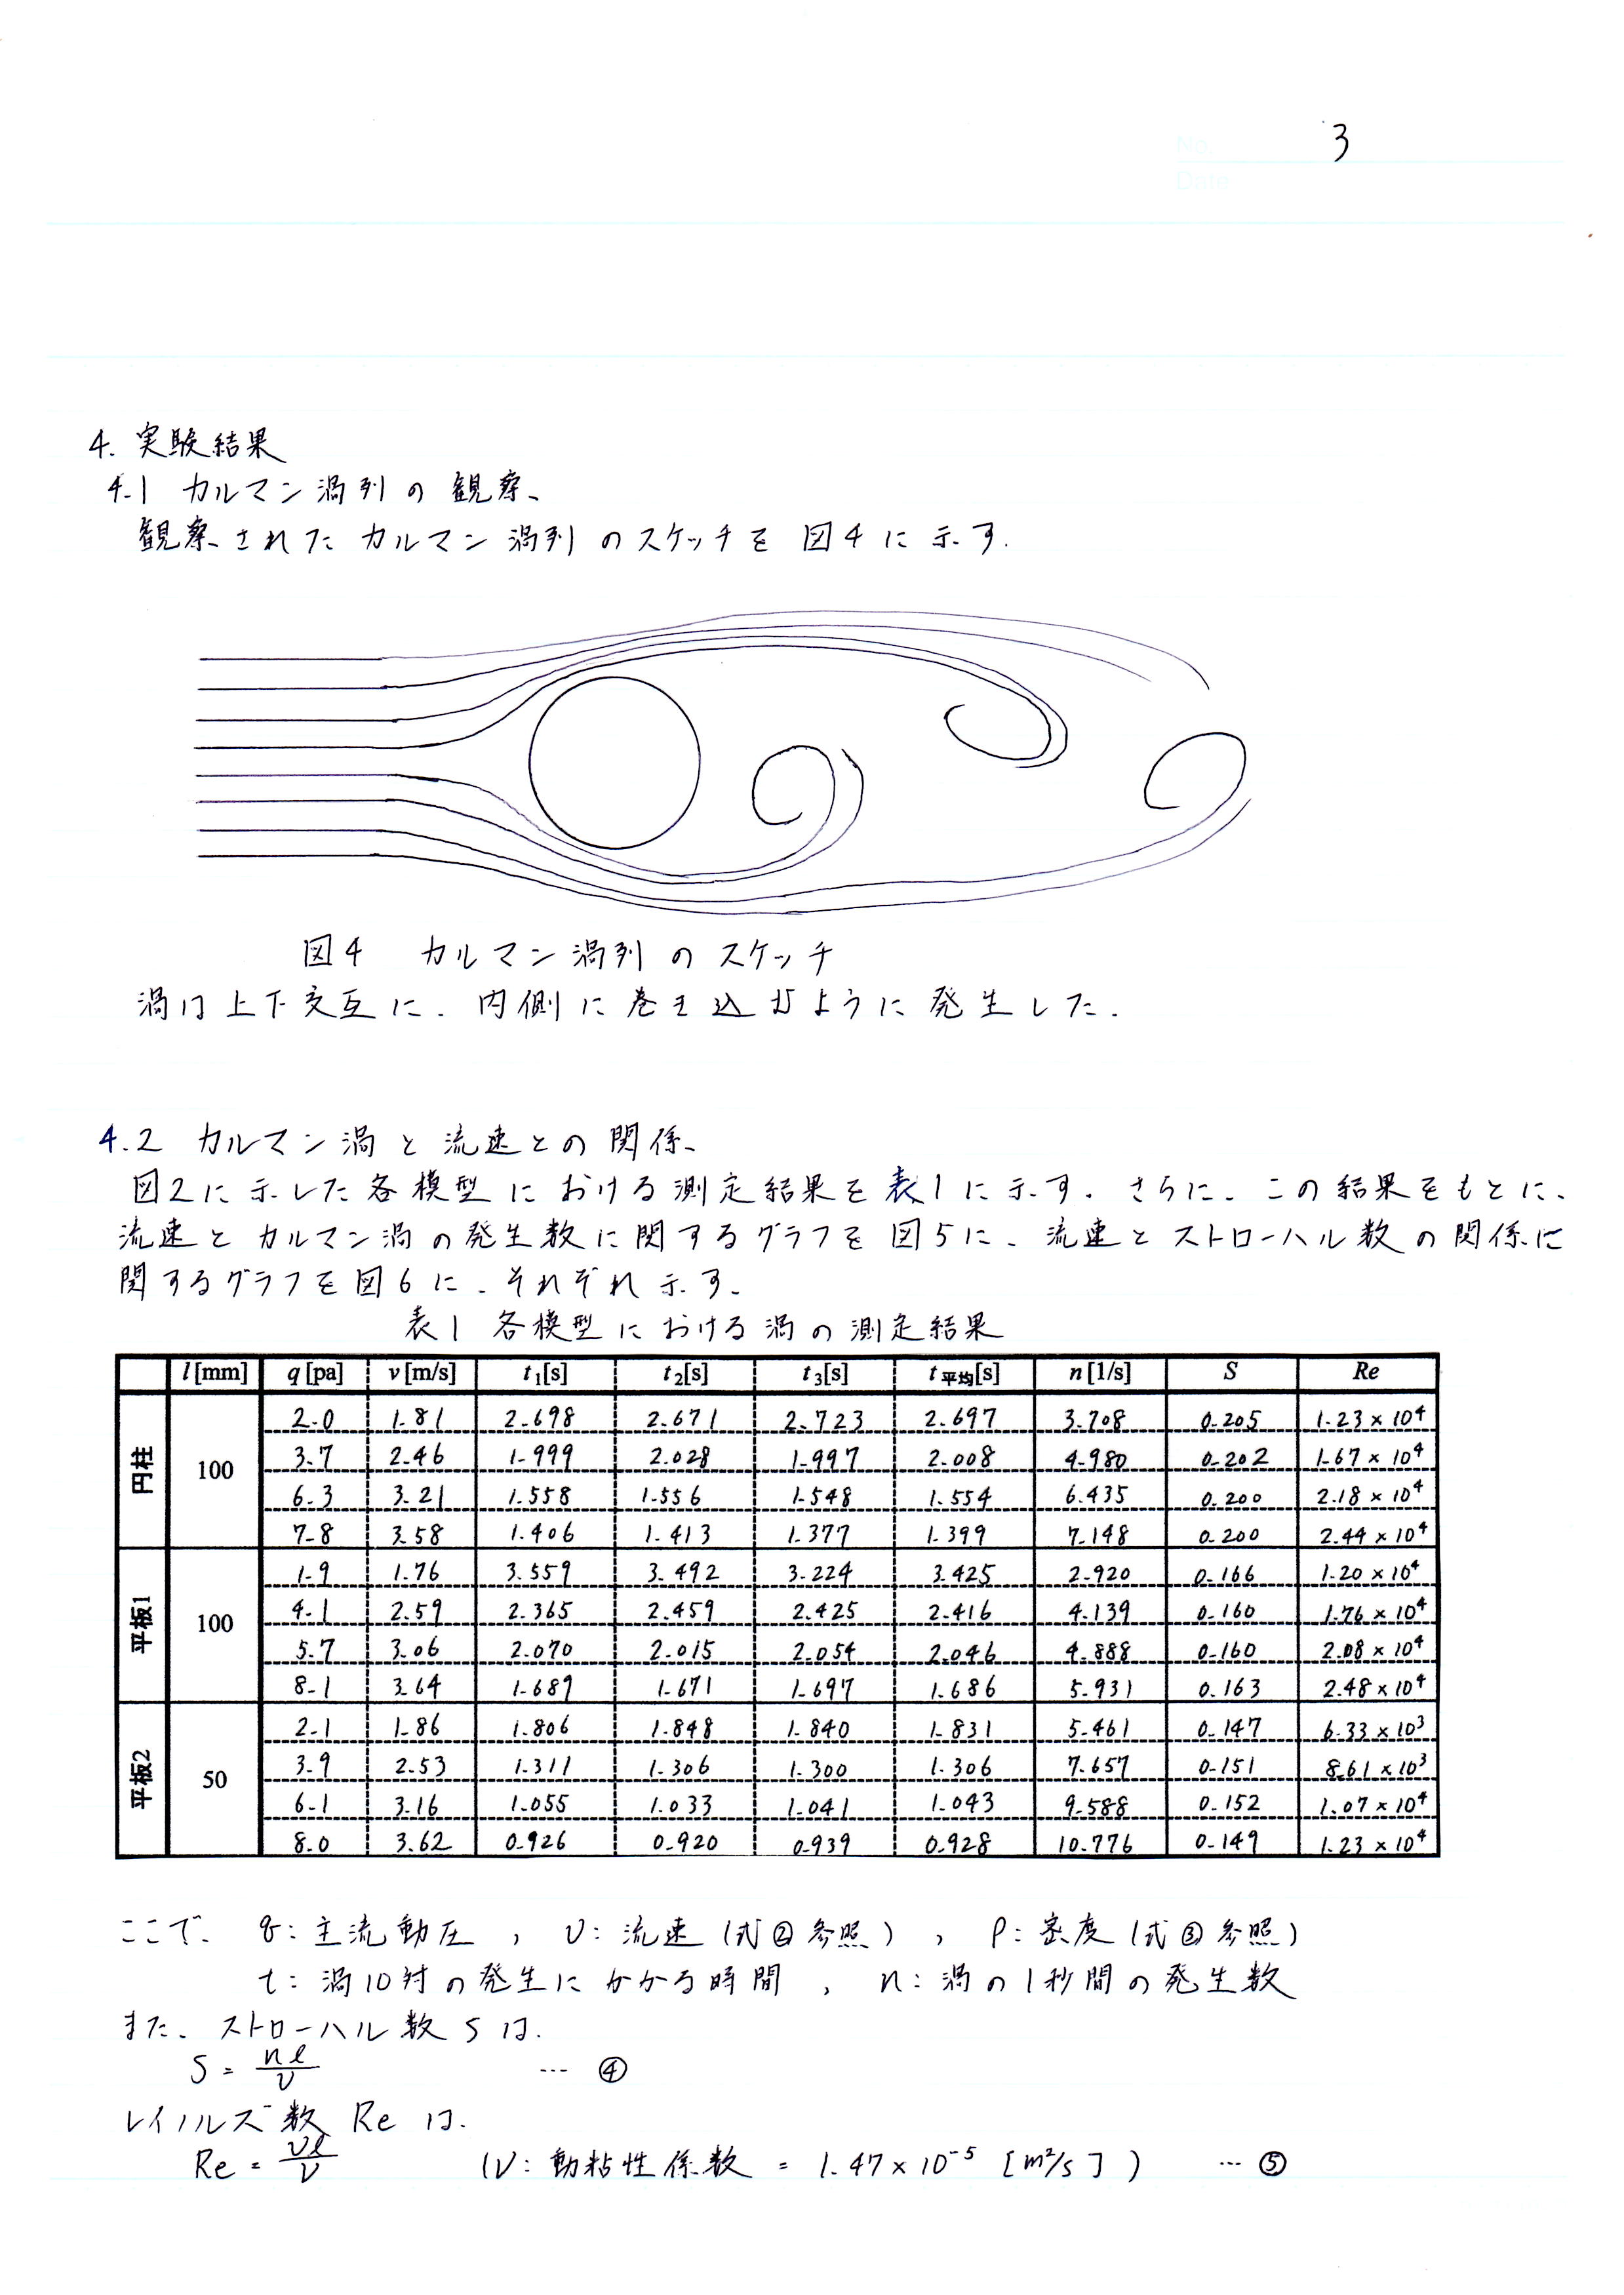 No.
3
Date
4. 実験結果
4.1 カルマン渦列の観察、
観察されたカルマン渦列のスケッチを図4に示す.
図4 カルマン渦列のスケッチ
渦は上下交互に、内側に巻き込むように発生した.
4.2 カルマン渦と流速との関係、
図2に示した各模型における測定結果を表1に示す. さらに、この結果をもとに、
流速とカルマン渦の発生数に関するグラフを図5に、流速とストローハル数の関係に
関するグラフを図6に、それぞれ示す、
表1 各模型における渦の測定結果
l [mm] q [pa] v [m/s] t1[s] t2[s] t3[s] t平均[s] n [1/s] S Re
円柱 100 2.0 1.81 2.698 2.671 2.723 2.697 3.708 0.205 1.23×10⁴
3.7 2.46 1.999 2.028 1.997 2.008 4.980 0.202 1.67×10⁴
6.3 3.21 1.558 1.556 1.548 1.554 6.435 0.200 2.18×10⁴
7.8 3.58 1.406 1.413 1.377 1.399 7.148 0.200 2.44×10⁴
平板1 100 1.9 1.76 3.559 3.492 3.224 3.425 2.920 0.166 1.20×10⁴
4.1 2.59 2.365 2.459 2.425 2.416 4.139 0.160 1.76×10⁴
5.7 3.06 2.070 2.015 2.054 2.046 4.888 0.160 2.08×10⁴
8.1 3.64 1.689 1.671 1.697 1.686 5.931 0.163 2.48×10⁴
平板2 50 2.1 1.86 1.806 1.848 1.840 1.831 5.461 0.147 6.33×10³
3.9 2.53 1.311 1.306 1.300 1.306 7.657 0.151 8.61×10³
6.1 3.16 1.055 1.033 1.041 1.043 9.588 0.152 1.07×10⁴
8.0 3.62 0.926 0.920 0.939 0.928 10.776 0.149 1.23×10⁴
ここで、 q: 主流動圧 , v: 流速 (式②参照) , ρ: 密度 (式③参照)
t: 渦10対の発生にかかる時間 , n: 渦の1秒間の発生数
また、ストローハル数 S は.
S = nl/v … ④
レイノルズ数 Re は.
Re = vl/ν (ν: 動粘性係数 = 1.47×10⁻⁵ [m²/s]) … ⑤